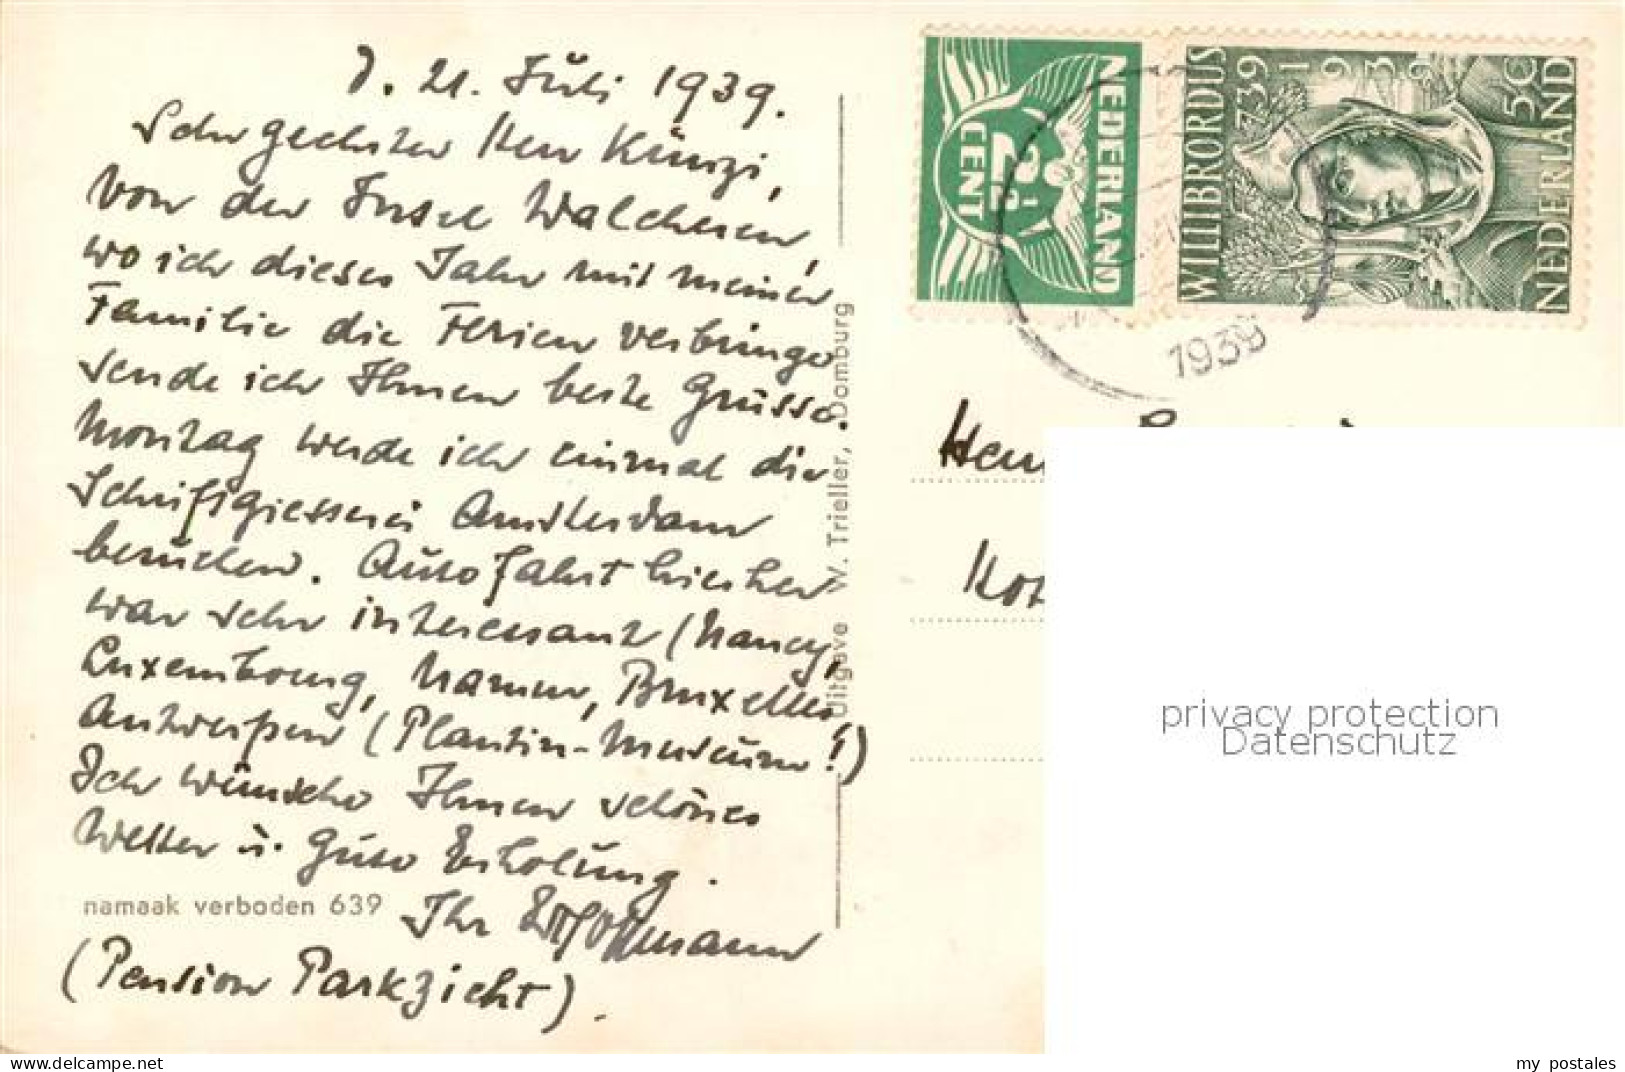 D. 21. Juli 1939.
Sehr geehrter Herr Künzi,
von der Insel Walcheren,
wo ich dieses Jahr mit meiner
Familie die Ferien verbringe
sende ich Ihnen beste Grüsse.
Montag werde ich einmal die
Schriftgiesserei Amsterdam
besuchen. Autofahrt hierher
war sehr interessant (Nancy,
Luxembourg, Namur, Bruxelles
Antwerpen (Plantin-Museum!)
Ich wünsche Ihnen schönes
Wetter u. gute Erholung.
Ihr
(Pension Parkzicht).
namaak verboden 639
Uitgave W. Trieller, Domburg
NEDERLAND
2½
CENT
WILLIBRORDUS
739 1939
5C
NEDERLAND
1939
Herrn
privacy protection
Datenschutz
my postales